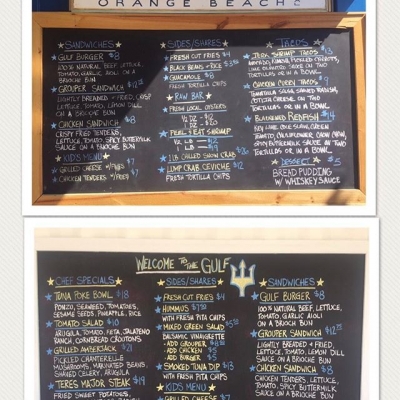 ORANGE BEACH
SANDWICHES
GULF BURGER $8
100% NATURAL BEEF, LETTUCE,
TOMATO, GARLIC AIOLI ON A
BRIOCHE BUN
GROUPER SANDWICH $12.95
LIGHTLY BREADED + FRIED, CRISP
LETTUCE, TOMATO, LEMON DILL
SAUCE ON A BRIOCHE BUN
CHICKEN SANDWICH $8
CRISPY FRIED TENDERS,
LETTUCE, TOMATO, SPICY BUTTERMILK
SAUCE ON A BRIOCHE BUN
KID'S MENU
GRILLED CHEESE W/FRIES $7
CHICKEN TENDERS W/FRIES $7
SIDES/SHARES
FRESH CUT FRIES $4
BLACK BEANS + RICE $3.50
GUACAMOLE $8
FRESH TORTILLA CHIPS
RAW BAR
FRESH LOCAL OYSTERS
1/2 DZ - $12
1 DZ - $20
PEEL & EAT SHRIMP
1/2 LB $12
1 LB
1 LB CHILLED SNOW CRAB
LUMP CRAB CEVICHE $12
FRESH TORTILLA CHIPS
TACOS
JERK SHRIMP TACOS $13
TORTILLAS OR IN A BOWL
CHICKEN CURRY TACOS $9
TORTILLAS OR IN A BOWL
BLACKENED REDFISH $14
SPICY BUTTERMILK SAUCE ON TWO
TORTILLAS OR IN A BOWL
DESSERT $5
BREAD PUDDING
W/ WHISKEY SAUCE
WELCOME TO THE GULF
CHEF SPECIALS
TUNA POKE BOWL $18
PONZU, SEAWEED, TOMATOES,
SESAME SEEDS, PINEAPPLE, RICE
TOMATO SALAD $10
ARUGULA, TOMATO, FETA, JALAPENO
RANCH, CORNBREAD CROUTONS
GRILLED AMBERJACK $21
PICKLED CHANTERELLE
MUSHROOMS, MARINATED BEANS,
SHAVED CELERY, ARUGULA
TERES MAJOR STEAK $19
FRIED SWEET POTATOES,
SIDES/SHARES
FRESH CUT FRIES $4
HUMMUS $7.50
WITH FRESH PITA CHIPS
MIXED GREEN SALAD $5.50
BALSAMIC VINAIGRETTE
ADD GROUPER
ADD CHICKEN $5
ADD BURGER $5
SMOKED TUNA DIP $13
WITH FRESH PITA CHIPS
KID'S MENU
GRILLED CHEESE $7
SANDWICHES
GULF BURGER $8
100% NATURAL BEEF, LETTUCE,
TOMATO, GARLIC AIOLI
ON A BRIOCH BUN
GROUPER SANDWICH $12.95
LIGHTLY BREADED + FRIED,
LETTUCE, TOMATO, LEMON DILL
SAUCE ON A BRIOCH BUN
CHICKEN SANDWICH $8
CHICKEN TENDERS, LETTUCE,
TOMATO, SPICY BUTTERMILK
SAUCE ON A BRIOCH BUN